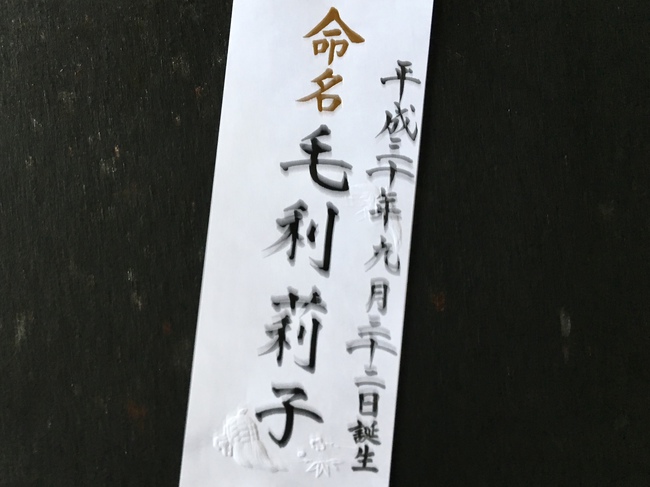 平成二十年九月二十二日誕生
命名
毛利莉子